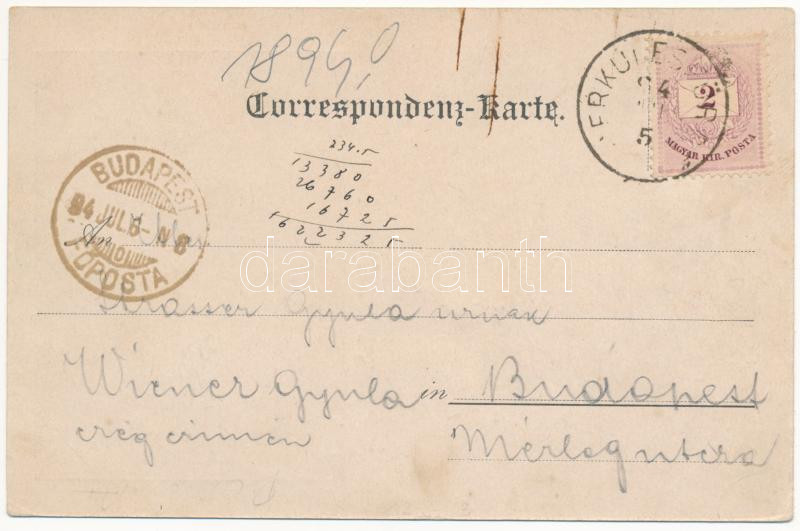 1894
Correspondenz-Karte.
2
MAGYAR KIR. POSTA
94
5
234.5
13380
26760
16725
BUDAPEST
94 JUL. 6
FŐPOSTA
An
Strasser Gyula urnak
Wiener Gyula in Budapest
czég czimén Mérleg utcza
darabanth